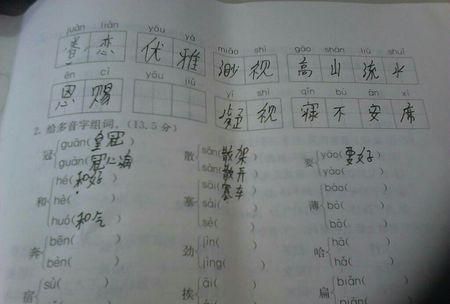 juàn liàn yōu yǎ
眷 恋 优 雅
miǎo shì gāo shān liú shuǐ
视 高 山 流 水
ēn cì yōu
恩 赐
shì qǐn bù ān xí
视 寝 不 安 席
2. 给多音字组词。(13.5 分)
冠 guān(皇冠 散 sǎn(散架 要 yào(要好
guàn(冠 sàn(散开 yāo(
和 hé(和好 塞 sāi(塞车 薄 báo(
hè( sài( bó(
huó(和气 sè( bò(
奔 bēn( 劲 jìn( 哈 hā(
bèn( jìng( hǎ(
宿 sù( 挨 āi( 扁 biǎn(